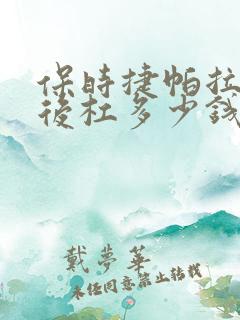 保時捷帕拉
後杠多少錢
戴夢華
未經同意禁止轉載